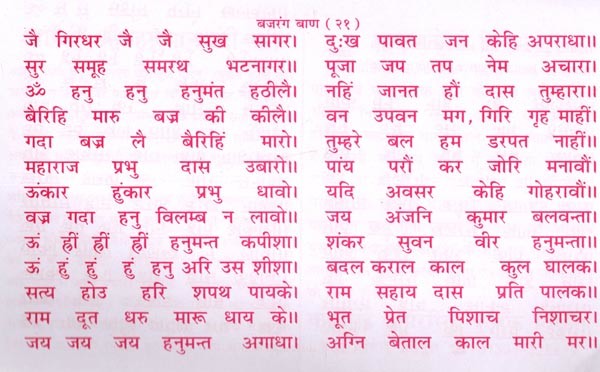 बजरंग बाण (२१)
जै गिरधर जै जै सुख सागर।
सुर समूह समरथ भटनागर॥
ॐ हनु हनु हनुमंत हठीलै।
बैरिहि मारु बज्र की कीलै॥
गदा बज्र लै बैरिहिं मारो।
महाराज प्रभु दास उबारो॥
ऊंकार हुंकार प्रभु धावो।
वज्र गदा हनु विलम्ब न लावो॥
ऊं ह्रीं ह्रीं ह्रीं हनुमन्त कपीशा।
ऊं हुं हुं हुं हनु अरि उस शीशा।
सत्य होउ हरि शपथ पायके।
राम दूत धरु मारू धाय के॥
जय जय जय हनुमन्त अगाधा।
दुःख पावत जन केहि अपराधा॥
पूजा जप तप नेम अचारा।
नहिं जानत हौं दास तुम्हारा॥
वन उपवन मग, गिरि गृह माहीं।
तुम्हरे बल हम डरपत नाहीं॥
पांय परौं कर जोरि मनावौं।
यदि अवसर केहि गोहरावौं॥
जय अंजनि कुमार बलवन्ता।
शंकर सुवन वीर हनुमन्ता॥
बदल कराल काल कुल घालक।
राम सहाय दास प्रति पालक॥
भूत प्रेत पिशाच निशाचर।
अग्नि बेताल काल मारी मर॥